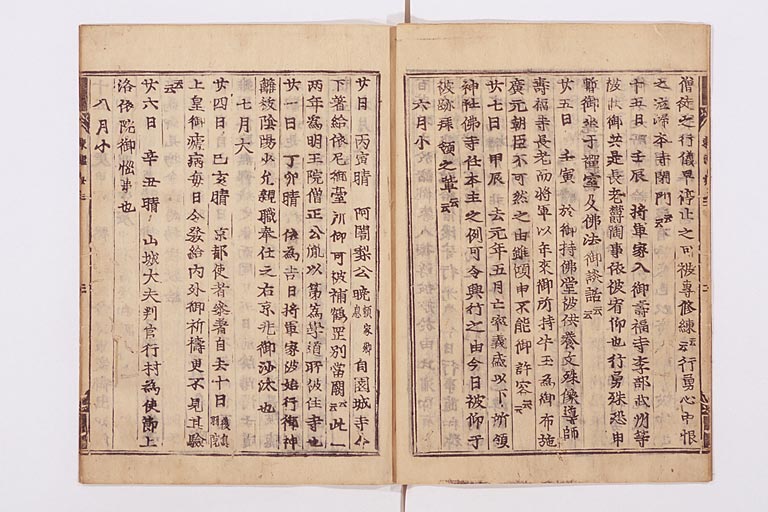 僧徒之行儀早停止之可被專修練云々行勇心中恨
之還歸本寺閉門云々
十五日 壬辰 將軍家入御壽福寺李部武州等
御共是長老欝陶事依被宥仰也行勇殊恐申
暫御坐于禪室及佛法御談話云々
廿五日 壬寅 於御持佛堂被供養文殊像導師
壽福寺長老而將軍以年來御所持牛玉為御布施
廣元朝臣不可然之由雖頌申不能御許容云々
廿七日 甲辰 去元年五月亡卒義盛以下所領
神社佛寺任本主之例可令興行之由今日被仰于
被跡拜領之輩云々
六月小
廿日 丙寅晴 阿闍梨公曉頼家卿息 自園城寺令
下著給依尼御臺所御可被補鶴罡別當闕云々此一
両年為明王院僧正公胤以第為學道所被住寺也
廿一日 丁卯晴 依為吉日將軍家被始行御神
離致陰陽少允親職奉仕之右京兆御沙汰也
七月大
廿四日 己亥晴 京都使者參著自去十日後鳥羽院
上皇御瘧病毎日令發給内外御祈禱更不見其驗
云々
廿六日 辛丑晴 山城大夫判官行村為使節上
洛依院御惱事也
八月小